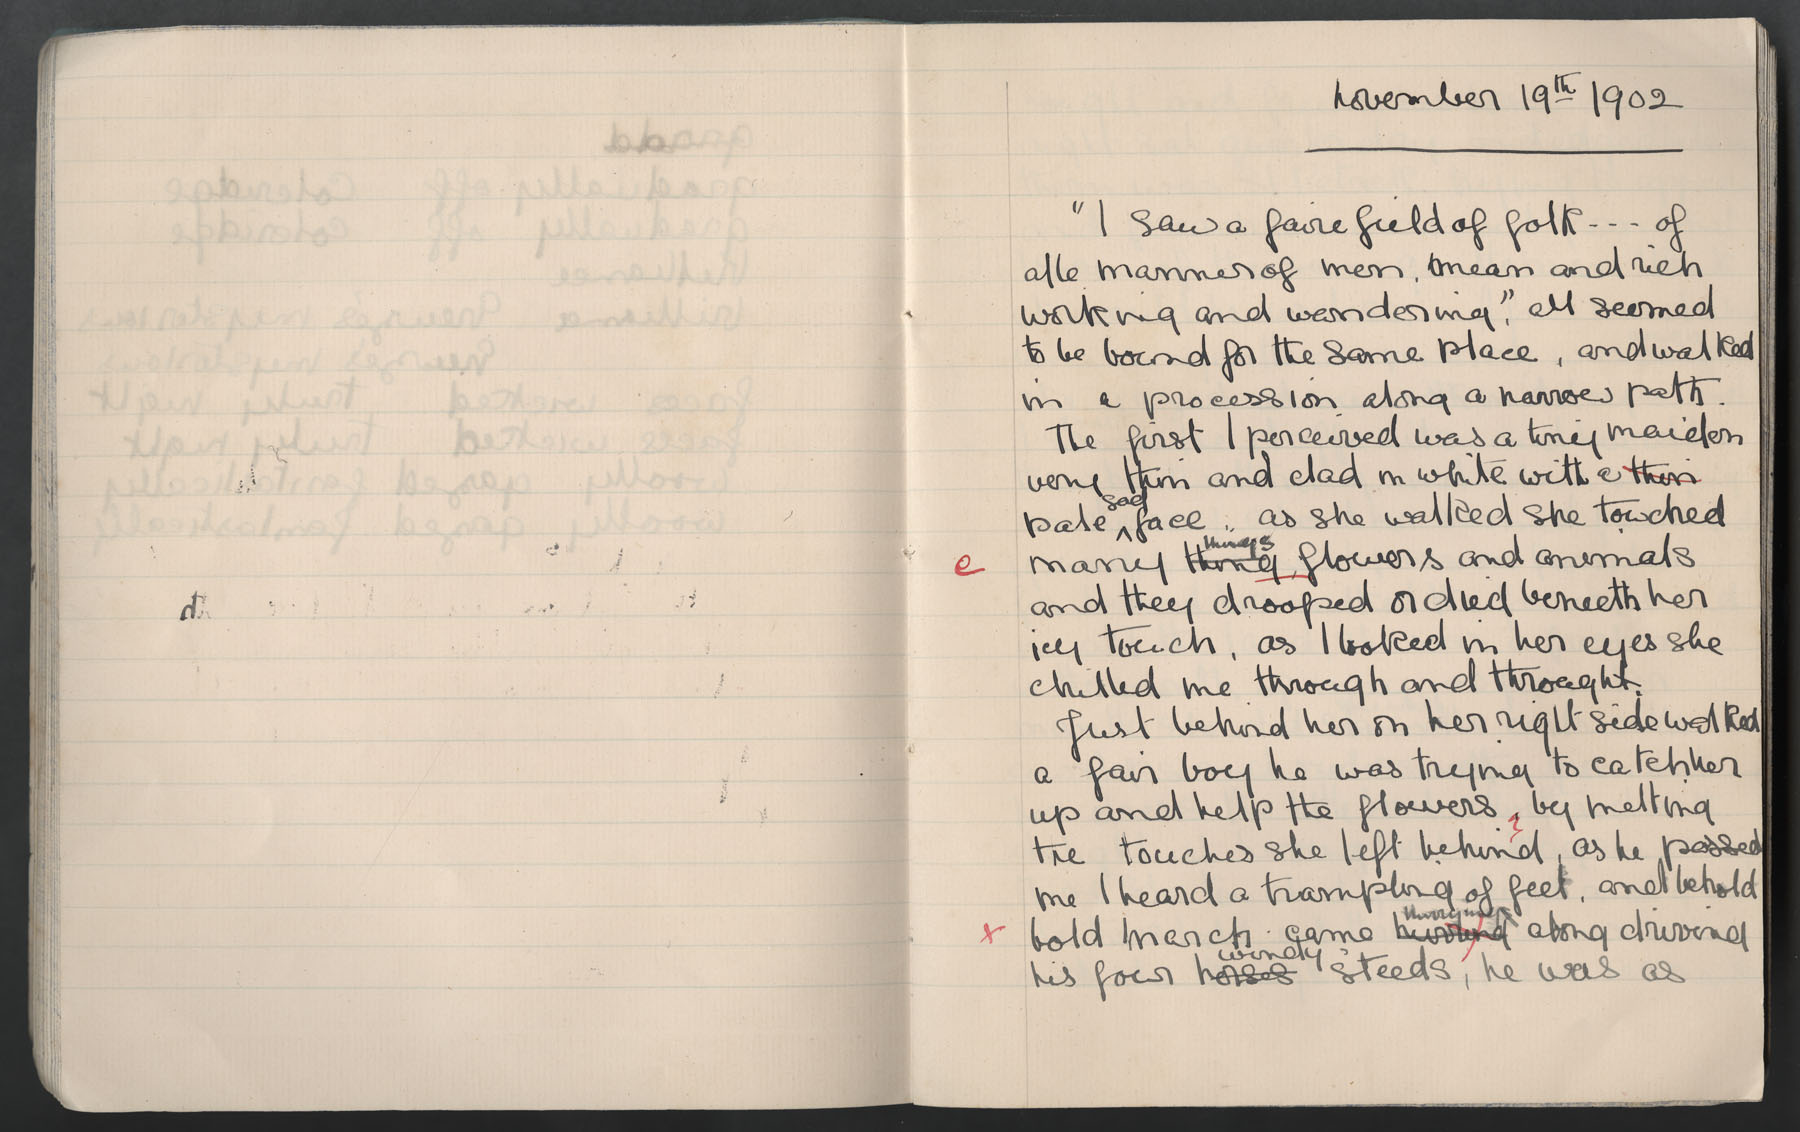 november 19th 1902
"I saw a faire field of folk --- of
alle manner of men, mean and rich
working and wandering", all seemed
to be bound for the same place, and walked
in a procession along a narrow path.
The first I perceived was a tiny maiden
very thin and clad in white with a thin
pale sad face.. as she walked she touched
many thing things flowers and animals
e
and they drooped or died beneath her
icy touch, as I looked in her eyes she
chilled me through and throught.
Just behind her on her right side walked
a fair boy he was trying to catch her
up and help the flowers, by melting
the touches she left behind, as he passed
me I heard a trampling of feet, and behold
x
bold March came hurrying along driving
his four horses windy steeds, he was as